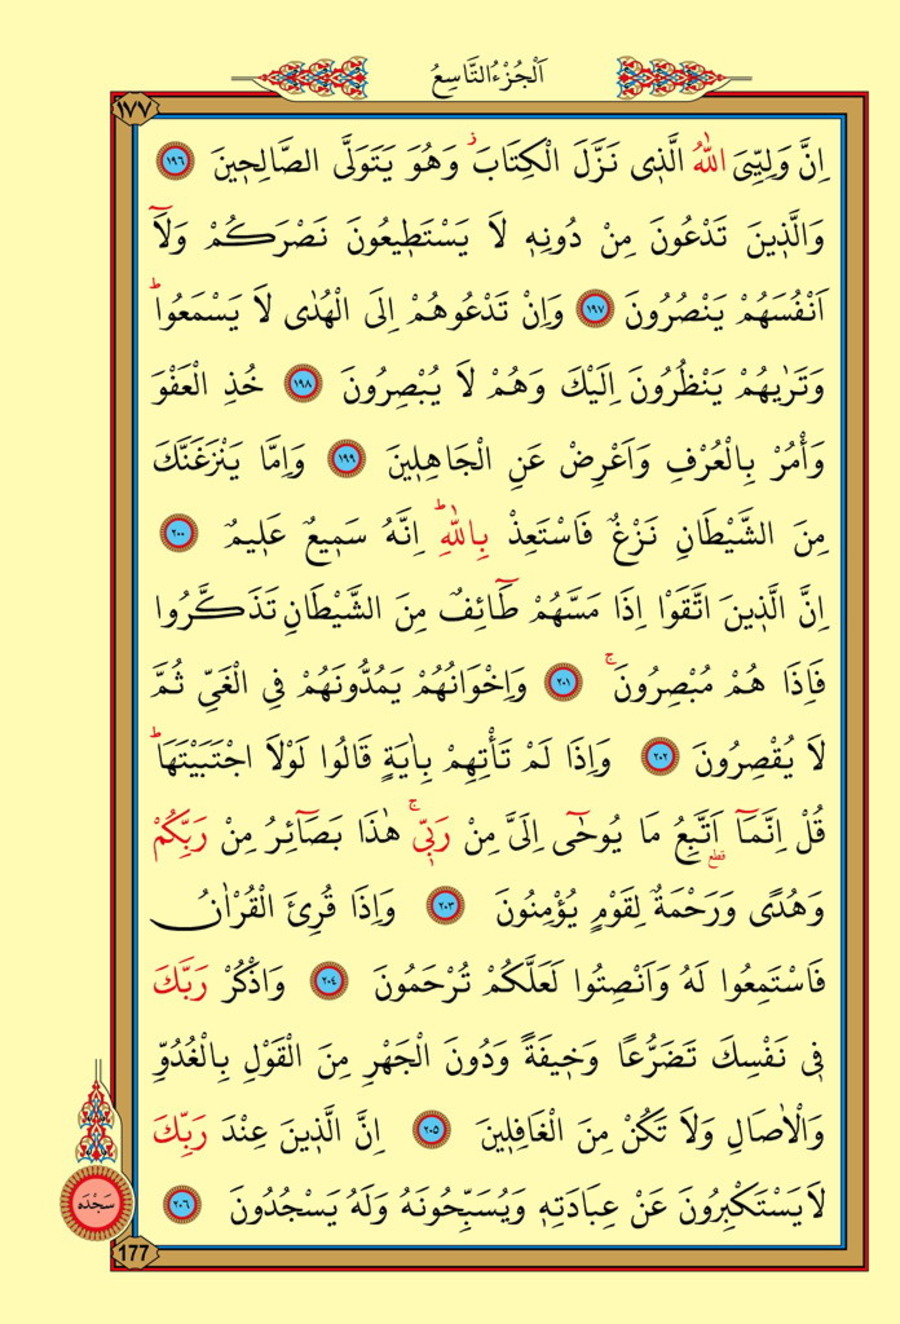 اَلْجُزْءُ التَّاسِعُ
١٧٧
اِنَّ وَلِيِّيَ اللّٰهُ الَّذٖى نَزَّلَ الْكِتَابَؗ وَهُوَ يَتَوَلَّى الصَّالِحٖينَ ١٩٦
وَالَّذٖينَ تَدْعُونَ مِنْ دُونِهٖ لَا يَسْتَطٖيعُونَ نَصْرَكُمْ وَلَآ
اَنْفُسَهُمْ يَنْصُرُونَ ١٩٧ وَاِنْ تَدْعُوهُمْ اِلَى الْهُدٰى لَا يَسْمَعُواؕ
وَتَرٰيهُمْ يَنْظُرُونَ اِلَيْكَ وَهُمْ لَا يُبْصِرُونَ ١٩٨ خُذِ الْعَفْوَ
وَأْمُرْ بِالْعُرْفِ وَاَعْرِضْ عَنِ الْجَاهِلٖينَ ١٩٩ وَاِمَّا يَنْزَغَنَّكَ
مِنَ الشَّيْطَانِ نَزْغٌ فَاسْتَعِذْ بِاللّٰهِؕ اِنَّهُ سَمٖيعٌ عَلٖيمٌ ٢٠٠
اِنَّ الَّذٖينَ اتَّقَوْا اِذَا مَسَّهُمْ طَآئِفٌ مِنَ الشَّيْطَانِ تَذَكَّرُوا
فَاِذَا هُمْ مُبْصِرُونَۚ ٢٠١ وَاِخْوَانُهُمْ يَمُدُّونَهُمْ فِى الْغَىِّ ثُمَّ
لَا يُقْصِرُونَ ٢٠٢ وَاِذَا لَمْ تَأْتِهِمْ بِاٰيَةٍ قَالُوا لَوْلَا اجْتَبَيْتَهَاؕ
قُلْ اِنَّمَآ اَتَّبِعُ مَا يُوحٰٓى اِلَىَّ مِنْ رَبّٖىۚ هٰذَا بَصَآئِرُ مِنْ رَبِّكُمْ
قطع
وَهُدًى وَرَحْمَةٌ لِقَوْمٍ يُؤْمِنُونَ ٢٠٣ وَاِذَا قُرِئَ الْقُرْاٰنُ
فَاسْتَمِعُوا لَهُ وَاَنْصِتُوا لَعَلَّكُمْ تُرْحَمُونَ ٢٠٤ وَاذْكُرْ رَبَّكَ
فٖى نَفْسِكَ تَضَرُّعًا وَخٖيفَةً وَدُونَ الْجَهْرِ مِنَ الْقَوْلِ بِالْغُدُوِّ
وَالْاٰصَالِ وَلَا تَكُنْ مِنَ الْغَافِلٖينَ ٢٠٥ اِنَّ الَّذٖينَ عِنْدَ رَبِّكَ
لَا يَسْتَكْبِرُونَ عَنْ عِبَادَتِهٖ وَيُسَبِّحُونَهُ وَلَهُ يَسْجُدُونَ ٢٠٦
سَجْدَه
177